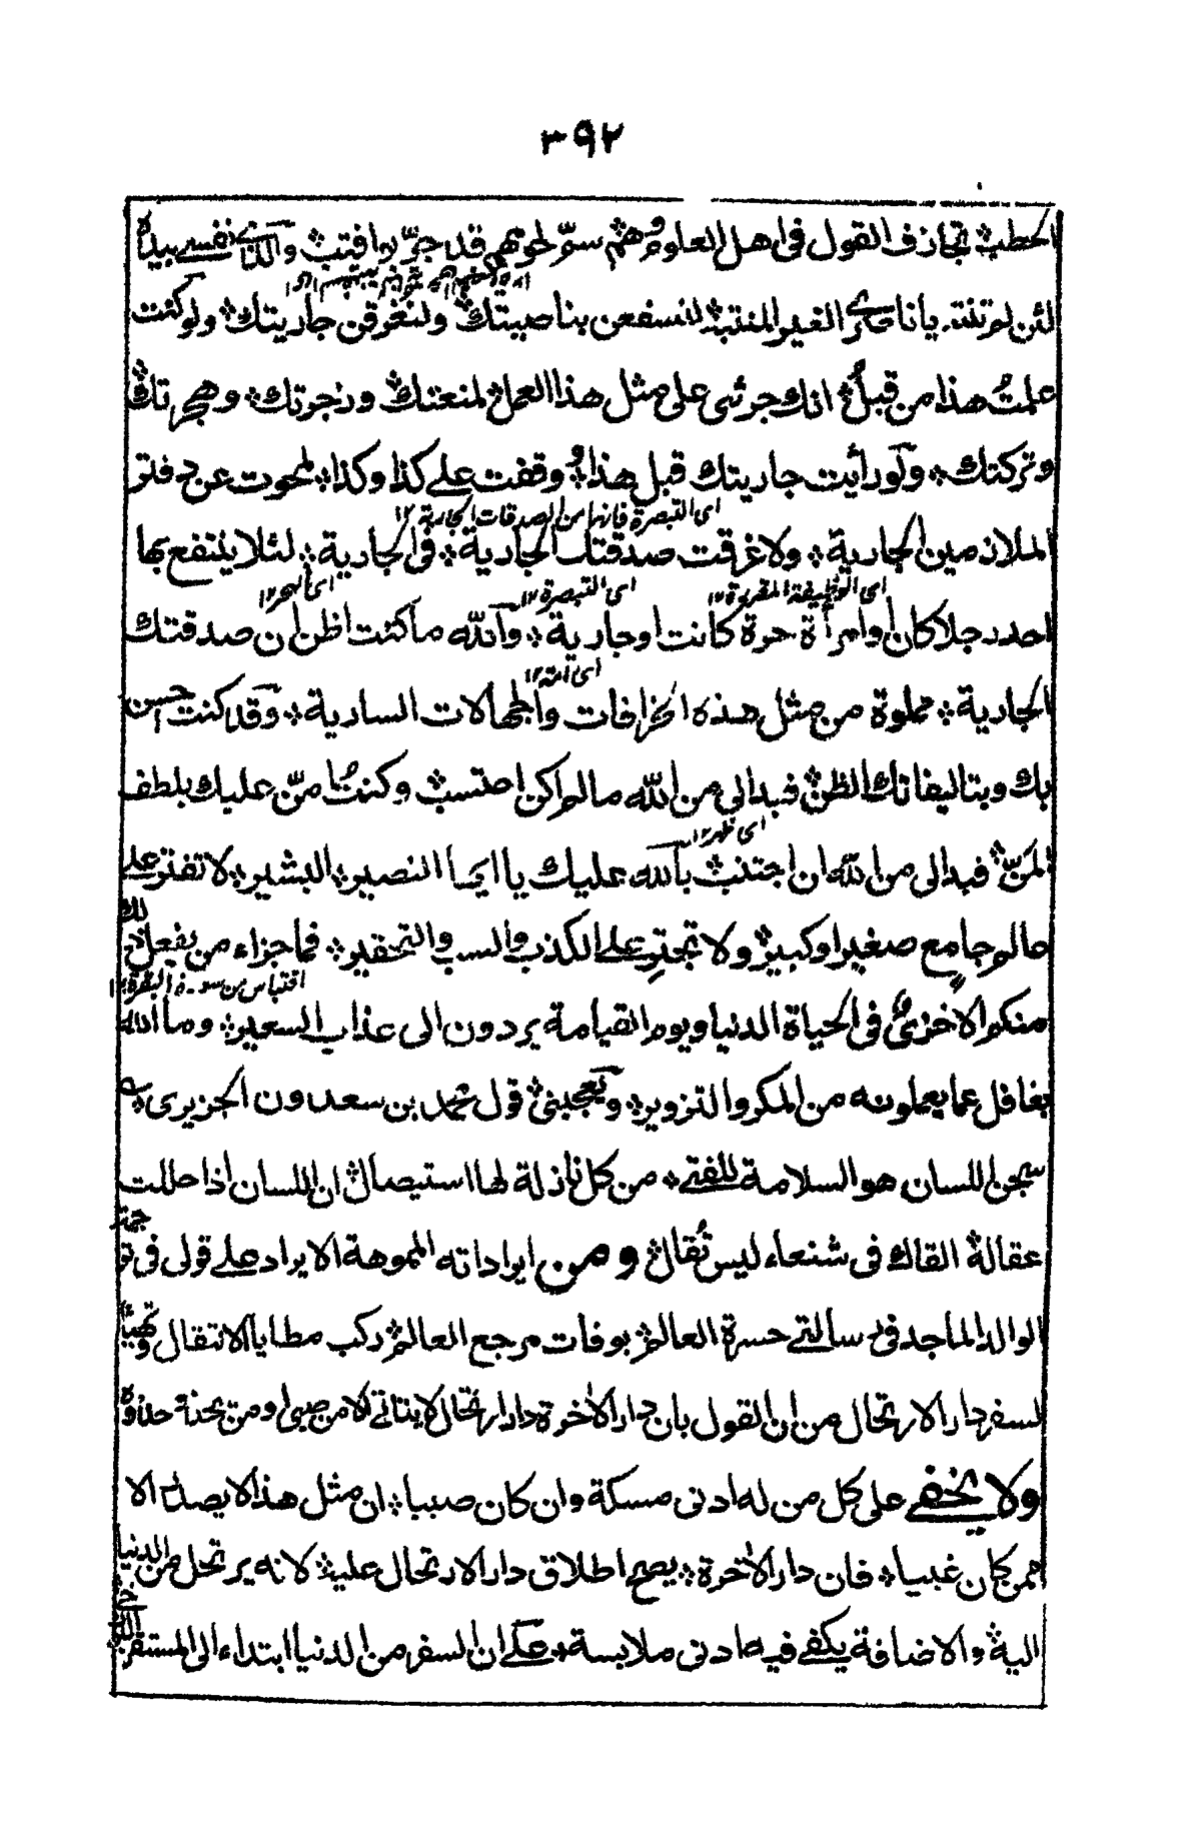 ٣٩٢
الحطب تجازف القول فى اهل العلوم هم سمّ لحومهم قد جرّب افتب والذى نفسى بيده
لئن لم تنته يا ناصرى الغير المنتبه لنسفعن بناصيتك ولنغرقن جاريتك ولو كنت
علمتُ هذا من قبلُ انك جرئ على مثل هذا العمل لمنعتك وزجرتك وهجرتك
وتركتك ولو رأيت جاريتك قبل هذا ووقفت على كذا وكذا لمحوت عن دفتر
اى التبصرة فانها من الصدقات الجارية ١٢
الملازمين الجارية ولاغرقت صدقتك الجارية فى الجارية لئلا ينتفع بها
اى الوظيفة المقررة ١٢ اى التبصرة ١٢ اى البحر ١٢
احد رجلا كان او امرأة حرة كانت او جارية والله ما كنت اظن ان صدقتك
اى امة ١٢
الجارية مملوة من مثل هذه الخرافات والجهالات السارية وقد كنت احسن
بك وبتاليفاتك الظن فبدا لى من الله ما لم اكن احتسب وكنتُ امنّ عليك بلطف
اى ظهر ١٢
المنّ فبدا لى من الله ان اجتنب بالله عليك يا ايها النصير البشير لا تفتر على
عالم جامع صغير او كبير ولا تجتر على الكذب والسب والتحقير فما جزاء من يفعل ذلك
اقتباس من سورة البقرة ١٢
منكم الا خزىٌ فى الحياة الدنيا ويوم القيامة يردون الى عذاب السعير وما الله
بغافل عما يعملونه من المكر والتزوير ويعجبنى قول محمد بن سعدون الجزيرى
سجن اللسان هو السلامة للفتى من كل نازلة لها استيصال ان اللسان اذا حللت
عقاله القاك فى شنعاء ليس تُقال ومن ايراداته المموهة الايراد على قولى فى ترجمة
الوالد الماجد فى رسالتى حسرة العالم بوفات مرجع العالم ركب مطايا الانتقال وتهيأ
لسفر دار الارتحال من ان القول بان دار الاخرة دار ارتحال لا يتاتى الا من صبى او من يحذو حذوه
ولا يخفى على كل من له ادنى مسكة وان كان صبيا ان مثل هذا لا يصدر الا
ممن كان غبيا فان دار الاخرة يصح اطلاق دار الارتحال عليه لانه يرتحل من الدنيا
اليه والاضافة يكفى فيه ادنى ملابسة على ان السفر من الدنيا ابتداء الى المستقر